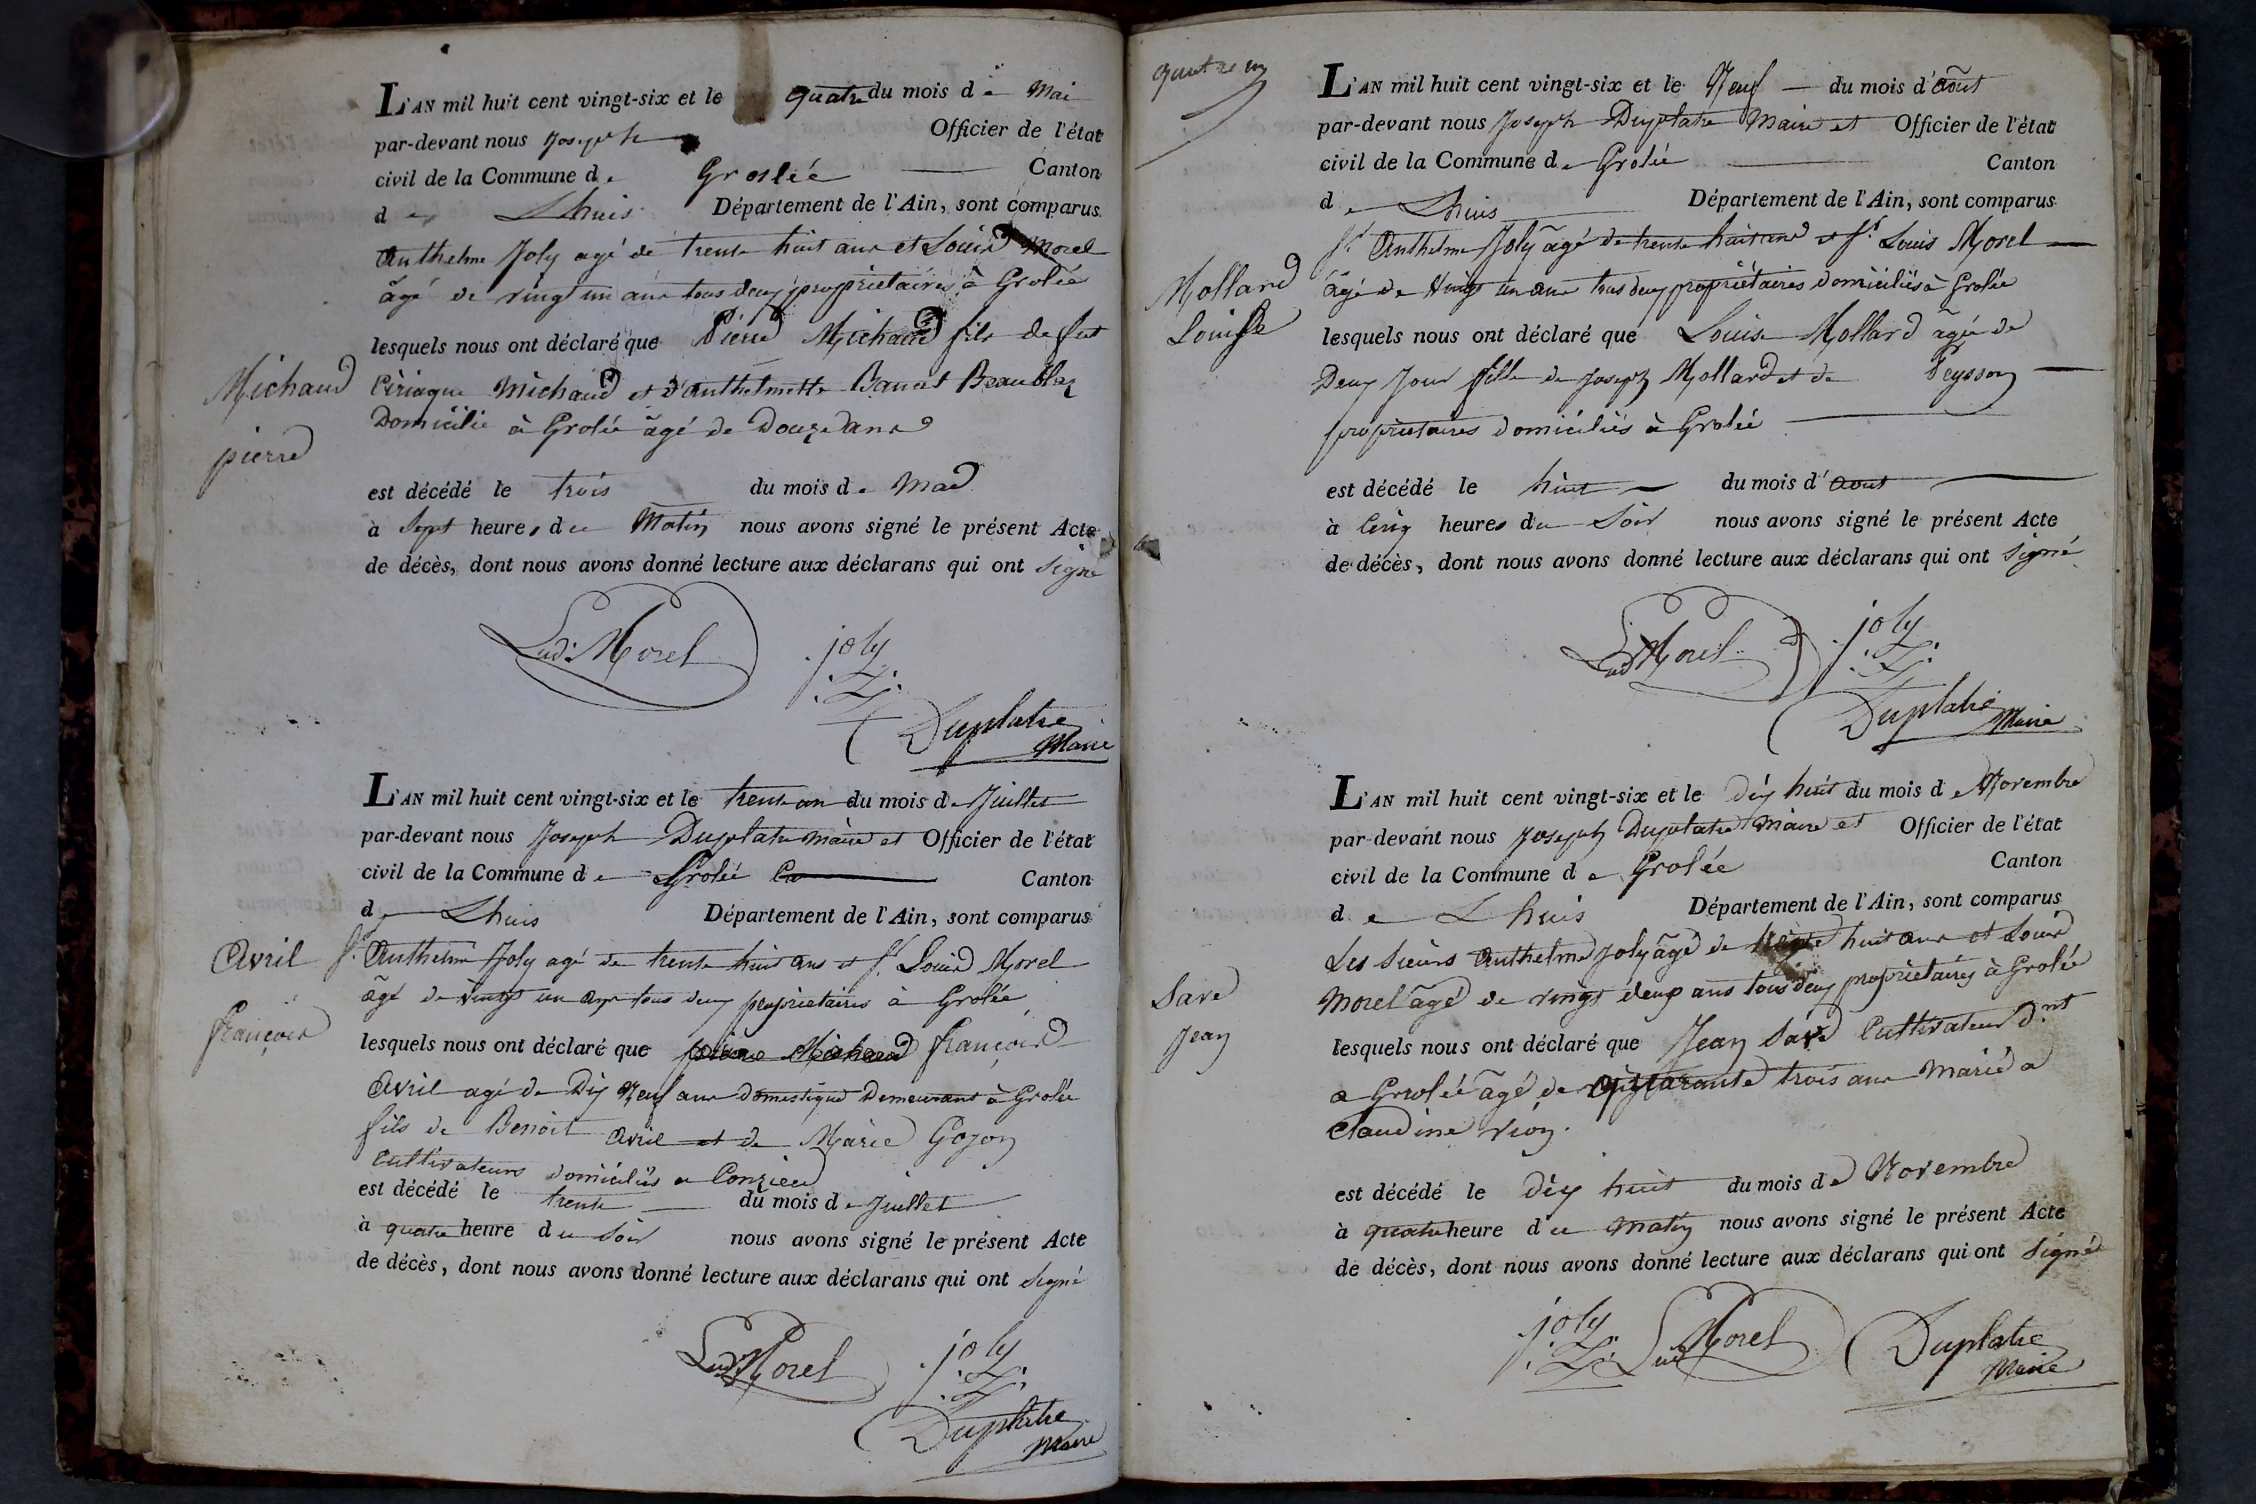 L'AN mil huit cent vingt-six et le quatre du mois de Mai
par-devant nous Joseph Officier de l'état
civil de la Commune de Groslée Canton
de Lhuis Département de l'Ain, sont comparus
Anthelme Joly agé de trente huit ans et Louis Morel
âgé de vingt un ans tous deux propriétaires à Grolée
lesquels nous ont déclaré que Pierre Michaud fils de feu
Michaud Ciriaque Michaud et d'Anthelmette Beaublez
Domicilié à Grolée âgé de Douze ans
pierre
est décédé le trois du mois de Mai
à Sept heures du Matin nous avons signé le présent Acte
de décès, dont nous avons donné lecture aux déclarans qui ont signé
Lud. Morel
joly
Duplatre
Maire
L'AN mil huit cent vingt-six et le trente un du mois de Juillet
par-devant nous Joseph Duplatre maire et Officier de l'état
civil de la Commune de Grolée Canton
de Lhuis Département de l'Ain, sont comparus
Avril Sr. Anthelme Joly agé de trente huit ans et Sr. Louis Morel
âgé de vingt un ans tous deux propriétaires à Grolée
françois
lesquels nous ont déclaré que pierre Michaud françois
Avril agé de Dix Neuf ans domestique Demeurant à Grolée
fils de Benoit Avril et de Marie Gojon
Cultivateurs domiciliés a Conzieu
est décédé le trente du mois de Juillet
à quatre heure du Soir nous avons signé le présent Acte
de décès, dont nous avons donné lecture aux déclarans qui ont signé
Lud Morel
joly
Duplatre
Maire
L'AN mil huit cent vingt-six et le Neuf du mois d'août
par-devant nous Joseph Duplatre Maire et Officier de l'état
civil de la Commune de Grolée Canton
de Lhuis Département de l'Ain, sont comparus
Sr. Anthelme Joly âgé de trente huit ans et Sr. Louis Morel
Mollard âgé de Vingt un ans tous deux propriétaires domiciliés à Grolée
Louise lesquels nous ont déclaré que Louise Mollard âgée de
Deux Jour fille de Joseph Mollard et de Peysson
propriétaires domiciliés à Grolée
est décédé le huit du mois d'aout
à Cinq heures du Soir nous avons signé le présent Acte
de décès, dont nous avons donné lecture aux déclarans qui ont signé
Lud Morel
joly
Duplatre
Maire
L'AN mil huit cent vingt-six et le dix huit du mois de Novembre
par-devant nous Joseph Duplatre Maire et Officier de l'état
civil de la Commune de Grolée Canton
de Lhuis Département de l'Ain, sont comparus
Les Sieurs Anthelme Joly âgé de huit ans et Louis
Save Morel âgé de vingt deux ans tous deux propriétaires à Grolée
Jean lesquels nous ont déclaré que Jean Save Cultivateur dnt
a Grolée âgé de quarante trois ans Marié a
Claudine
est décédé le dix huit du mois de Novembre
à quatre heure du matin nous avons signé le présent Acte
de décès, dont nous avons donné lecture aux déclarans qui ont signé
joly
Lud Morel
Duplatre
Maire